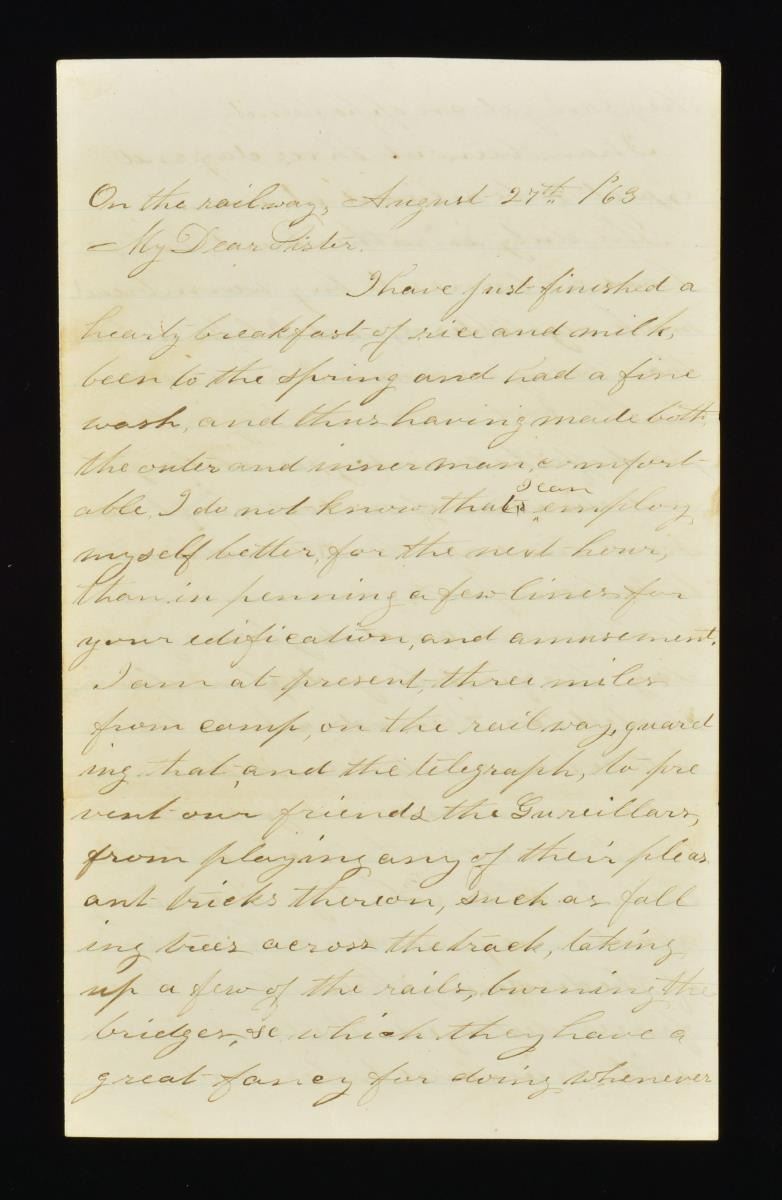 On the railway, August 27th /63
My Dear Sister.
I have just finished a
hearty breakfast of rice and milk,
been to the spring and had a fine
wash, and thus having made both
the outer and inner man, comfort
able, I do not know that I can employ
myself better, for the next hour,
than in penning a few lines for
your edification, and amusement.
I am at present, three miles
from camp, on the railway, guard
ing that, and the telegraph, to pre
vent our friends the Gureillars,
from playing any of their pleas
ant tricks thereon, such as fall
ing trees across the track, taking
up a few of the rails, burning the
bridges, &c which they have a
great fancy for doing whenever